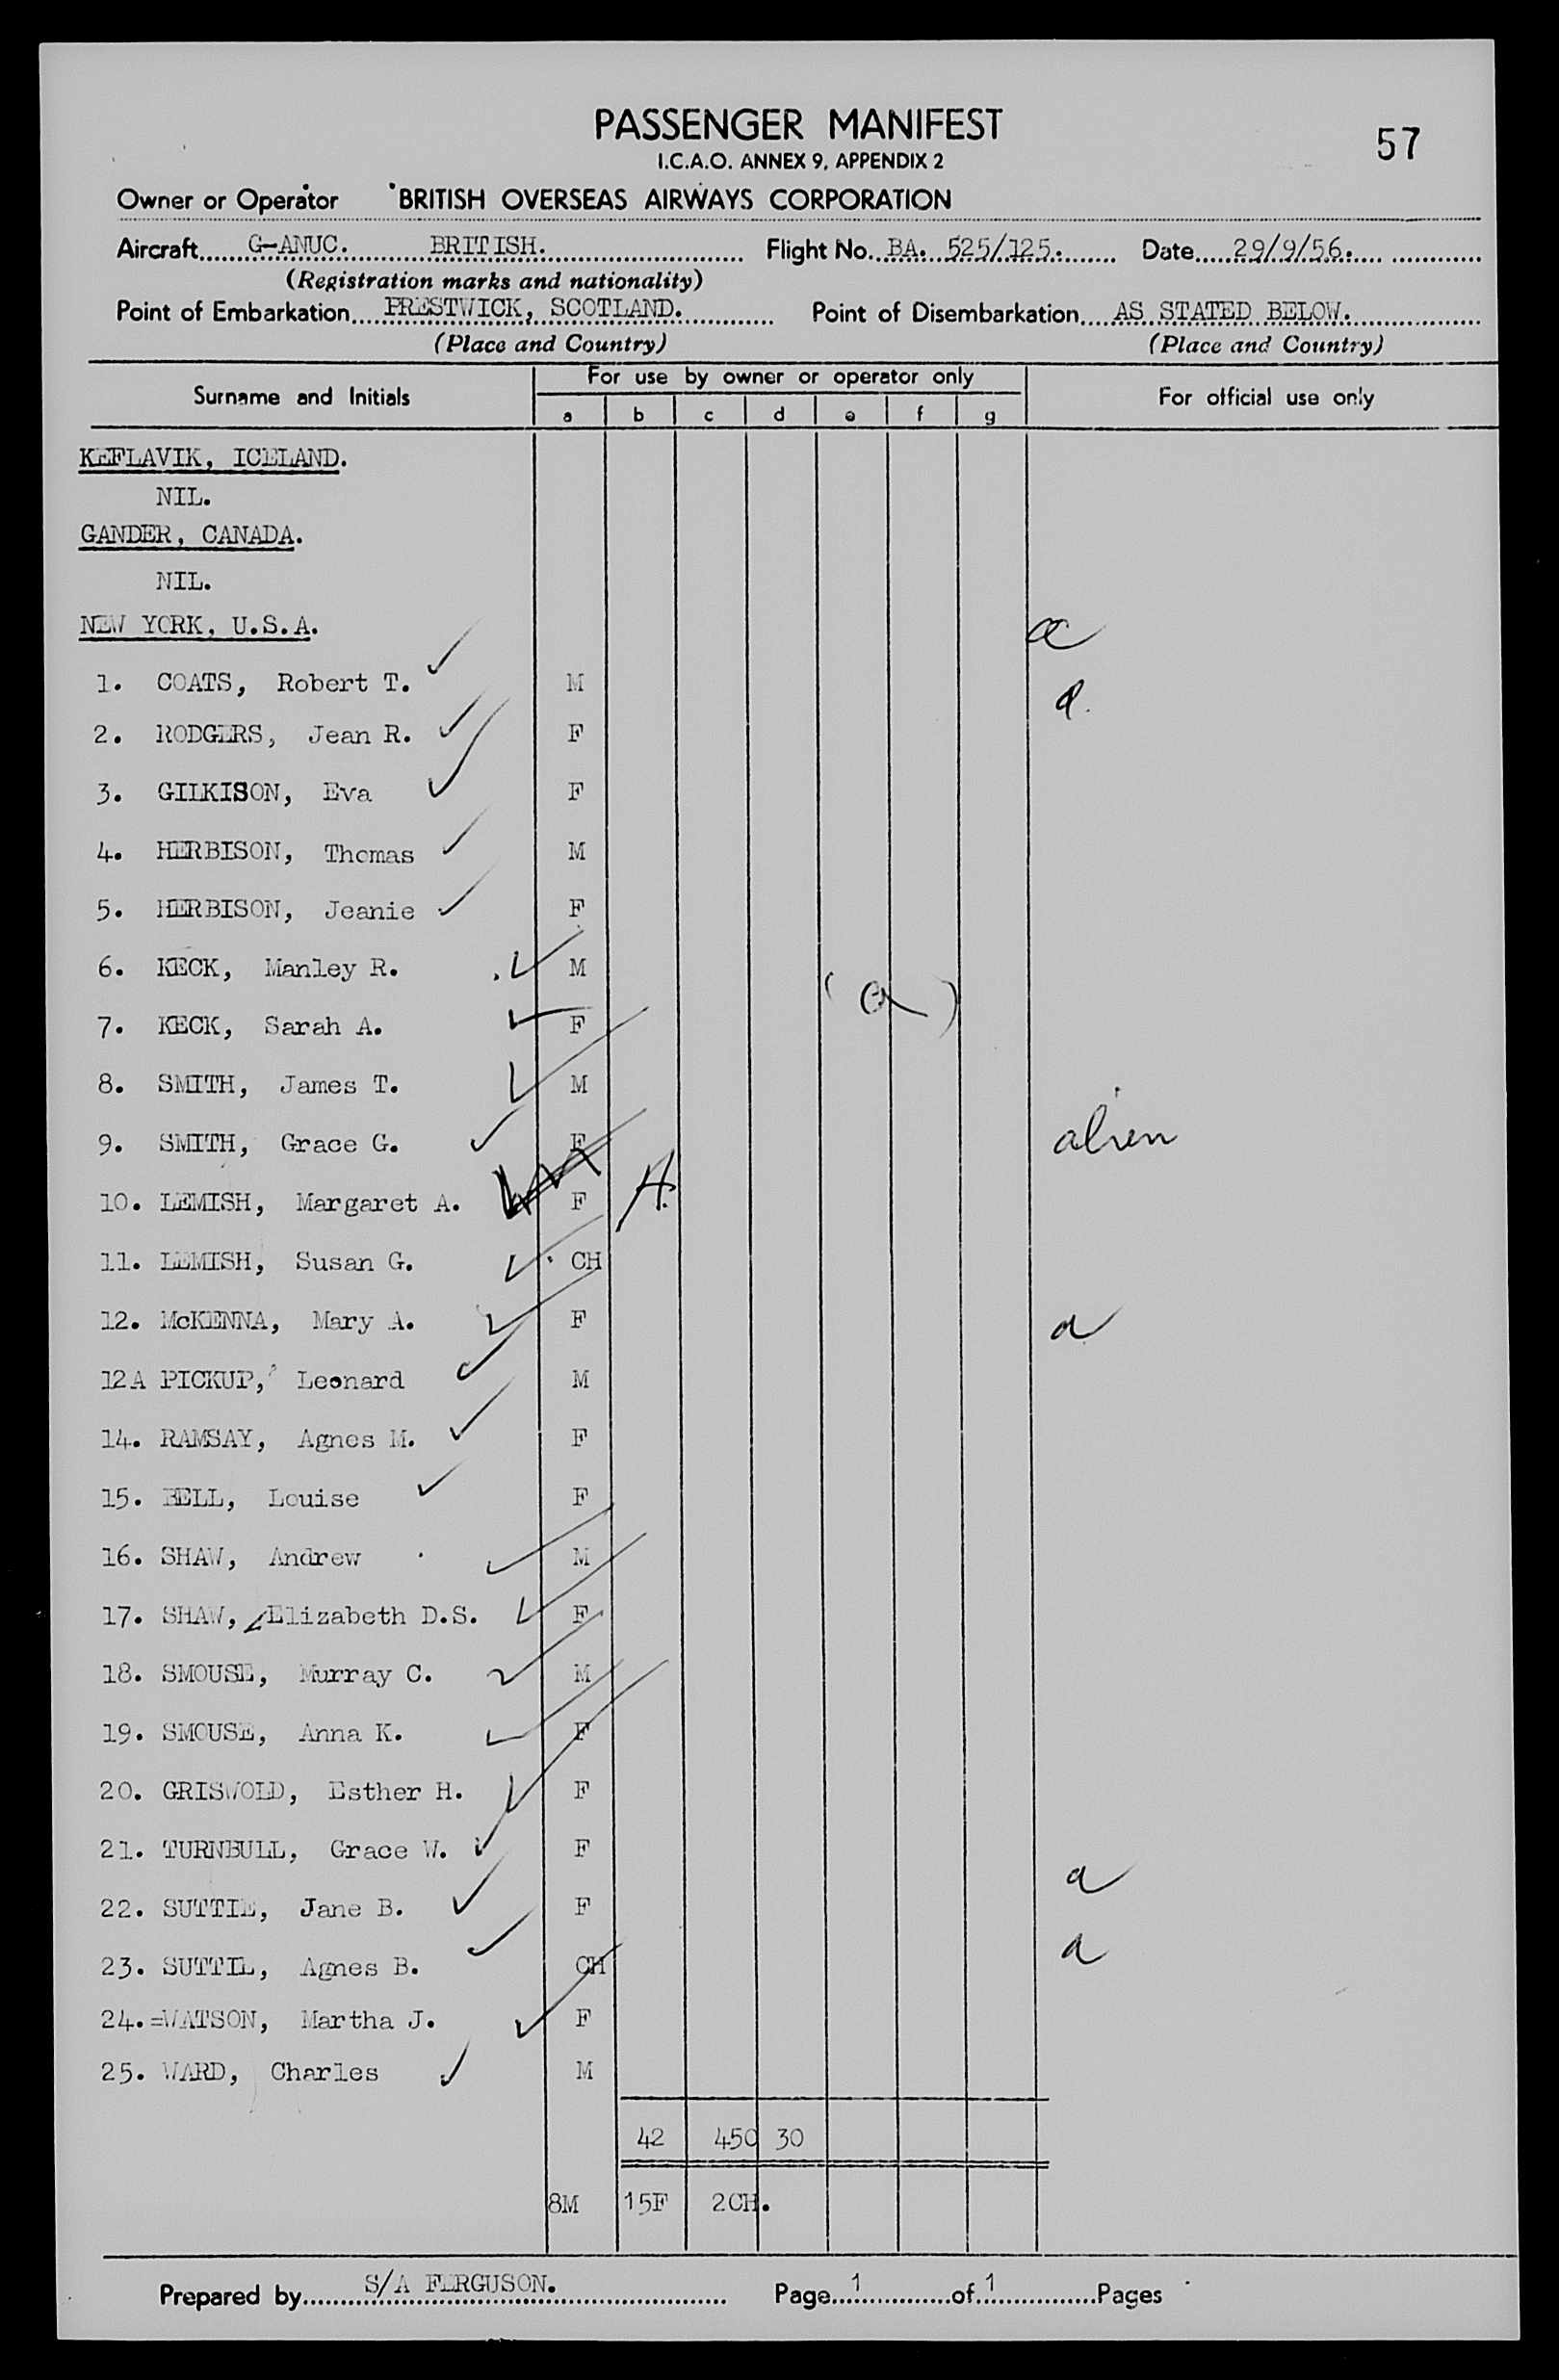 PASSENGER MANIFEST
57
I.C.A.O. ANNEX 9, APPENDIX 2
Owner or Operator BRITISH OVERSEAS AIRWAYS CORPORATION
Aircraft G-ANUC. BRITISH. Flight No. BA. 525/125. Date 29/9/56.
(Registration marks and nationality)
Point of Embarkation PRESTWICK, SCOTLAND. Point of Disembarkation AS STATED BELOW.
(Place and Country) (Place and Country)
Surname and Initials For use by owner or operator only For official use only
a b c d e f g
KEFLAVIK, ICELAND.
NIL.
GANDER, CANADA.
NIL.
NEW YORK, U.S.A. a
1. COATS, Robert T. M
2. RODGERS, Jean R. F
3. GILKISON, Eva F
4. HERBISON, Thomas M
5. HERBISON, Jeanie F
6. KECK, Manley R. M
(a)
7. KECK, Sarah A. F
8. SMITH, James T. M
9. SMITH, Grace G. F alien
10. LEMISH, Margaret A. F A.
11. LEMISH, Susan G. CH
12. McKENNA, Mary A. F a
12A PICKUP, Leonard M
14. RAMSAY, Agnes M. F
15. BELL, Louise F
16. SHAW, Andrew M
17. SHAW, Elizabeth D.S. F
18. SMOUSE, Murray C. M
19. SMOUSE, Anna K. F
20. GRISWOLD, Esther H. F
21. TURNBULL, Grace W. F
a
22. SUTTIE, Jane B. F
23. SUTTIE, Agnes B. CH a
24.=WATSON, Martha J. F
25. WARD, Charles M
42 450 30
8M 15F 2CH.
Prepared by S/A FERGUSON. Page 1 of 1 Pages